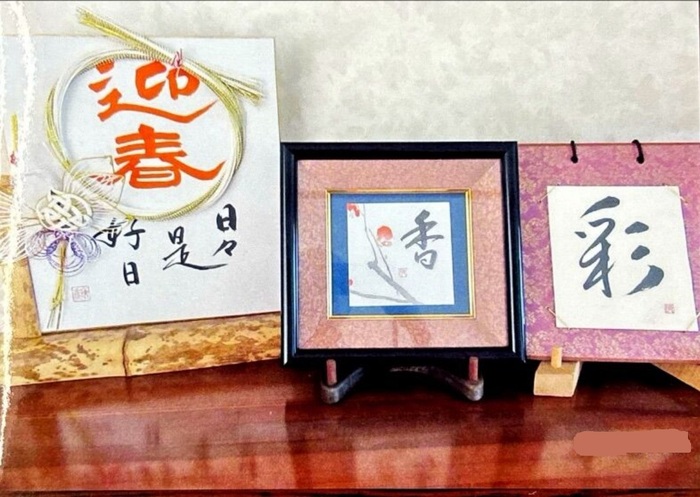 迎春
日々
是
好日
香
彩